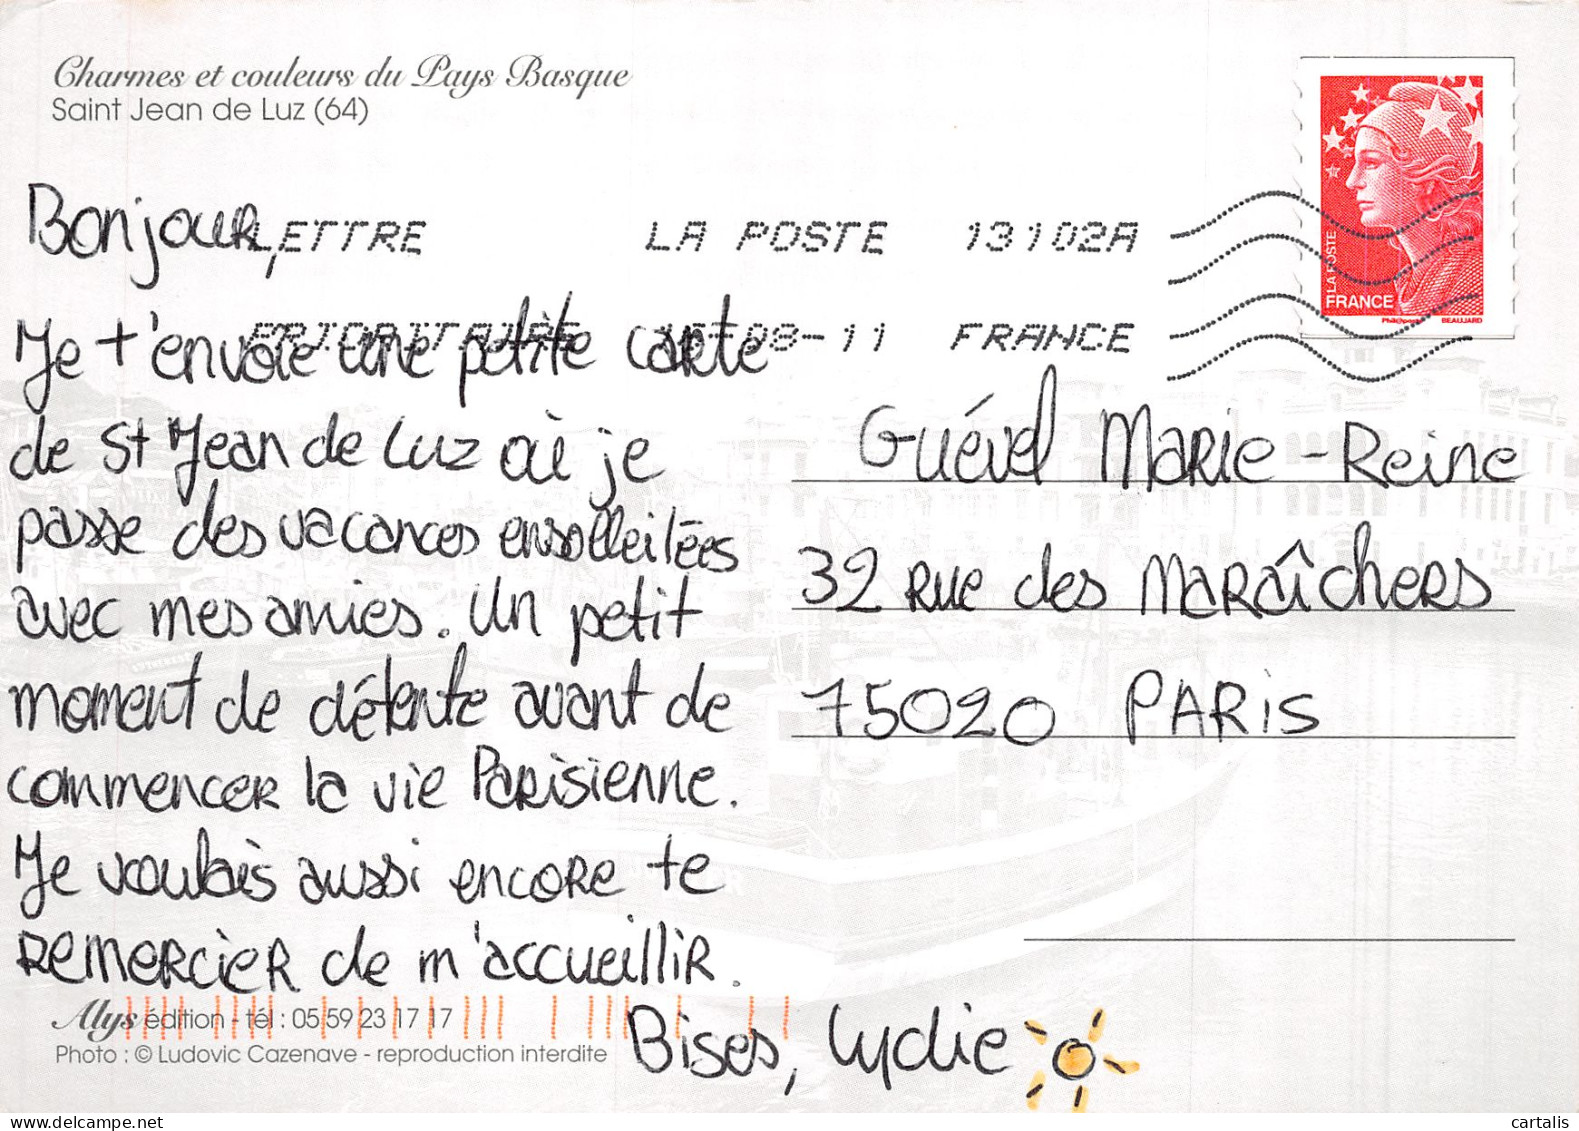 Charmes et couleurs du Pays Basque
Saint Jean de Luz (64)
LA POSTE
FRANCE
Philaposte BEAUJARD
LETTRE LA POSTE 13102A
PRIORITAIRE 08-11 FRANCE
Bonjour,
Je t'envoie une petite carte
de St Jean de Luz où je
passe des vacances ensolleilées
avec mes amies. Un petit
moment de détente avant de
commencer la vie Parisienne.
Je voulais aussi encore te
remercier de m'accueillir.
Bises, Lydie
Guével Marie-Reine
32 rue des Maraîchers
75020 PARIS
Alys édition - tél : 05 59 23 17 17
Photo : © Ludovic Cazenave - reproduction interdite
cartalis